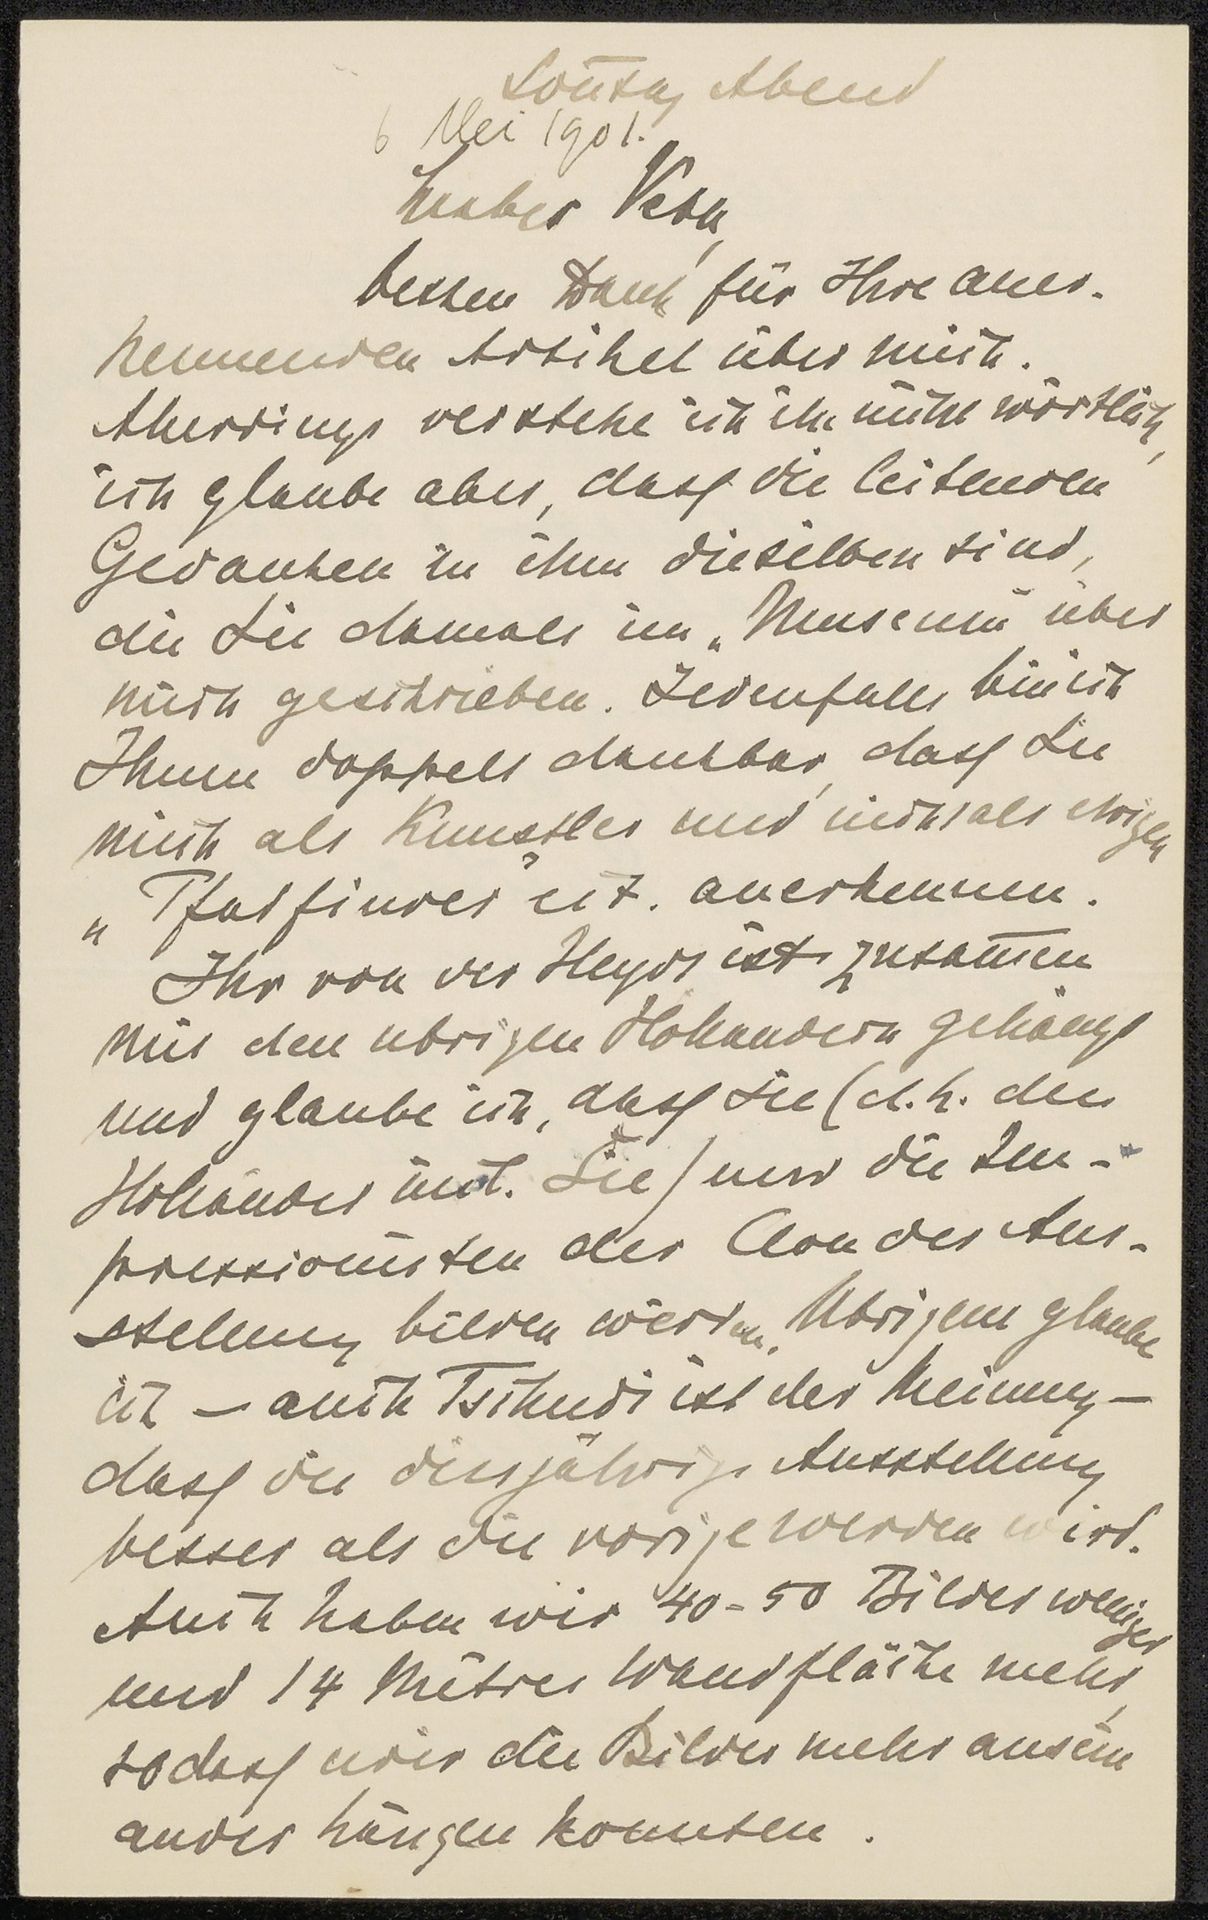 Sonntag Abend
6 Mei 1901.
Lieber Veth,
besten Dank für Ihre aner-
kennenden Artikel über mich.
Allerdings verstehe ich ihn nicht wörtlich,
ich glaube aber, dass die leitenden
Gedanken in ihm dieselben sind,
die Sie damals im „Museum" über
mich geschrieben. Jedenfalls bin ich
Ihnen doppelt dankbar, dass Sie
mich als Künstler und nicht als ewigen
„Pfadfinder" ect. anerkennen.
Ihr von der Heydt ist zusammen
mit den übrigen Holländern gehängt
und glaube ich, dass Sie (d.h. die
Holländer incl. Sie) und die Im-
pressionisten der Clou der Aus-
stellung bilden werden. Übrigens glaube
ich – auch Tschudi ist der Meinung –
dass die diesjährige Ausstellung
besser als die vorige werden wird.
Auch haben wir 40-50 Bilder weniger
und 14 Mètres Wandfläche mehr,
sodass wir die Bilder mehr ausein
ander hängen konnten.